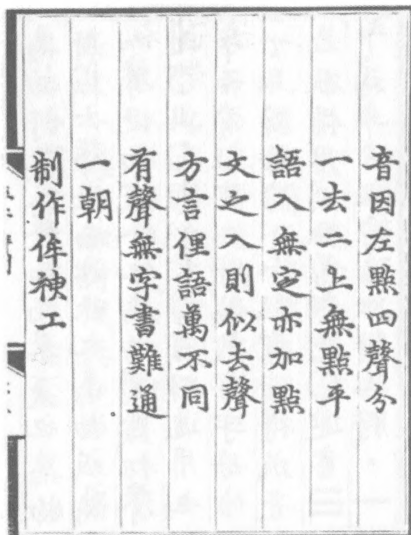 音因左點四聲分
一去二上無點平
語入無定亦加點
文之入則似去聲
方言俚語萬不同
有聲無字書難通
一朝
制作侔神工